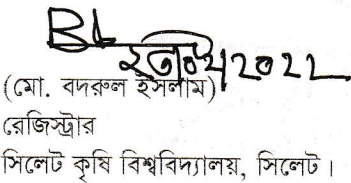 (মো. বদরুল ইসলাম)
রেজিস্ট্রার
সিলেট কৃষি বিশ্ববিদ্যালয়, সিলেট।